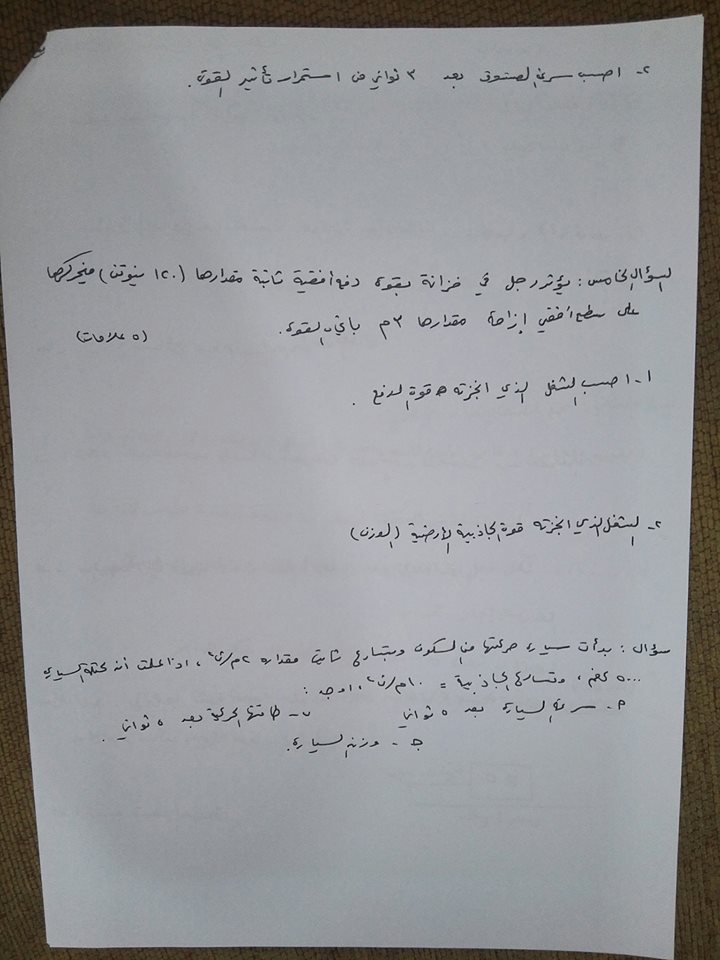 ٢- احسب سرعة الصندوق بعد ٣ ثواني من استمرار تأثير القوة.
السؤال الخامس : يؤثر رجل في خزانة بقوة دفع أفقية ثابتة مقدارها (١٢٠ نيوتن) فيحركها
على سطح أفقي إزاحة مقدارها ٣ م باتجاه القوة. (٥ علامات)
١- احسب الشغل الذي انجزته قوة الدفع .
٢- الشغل الذي انجزته قوة الجاذبية الارضية (الوزن)
سؤال : بدأت سيارة حركتها من السكون وبتسارع ثابت مقداره ٢م/ث٢ ، اذا علمت أن كتلة السيارة
٥٠٠٠ كغم ، وتسارع الجاذبية = ١٠م/ث٢ ، اوجد :
٢- سرعة السيارة بعد ٥ ثواني ب- طاقتها الحركية بعد ٥ ثواني .
ج- وزن السيارة.